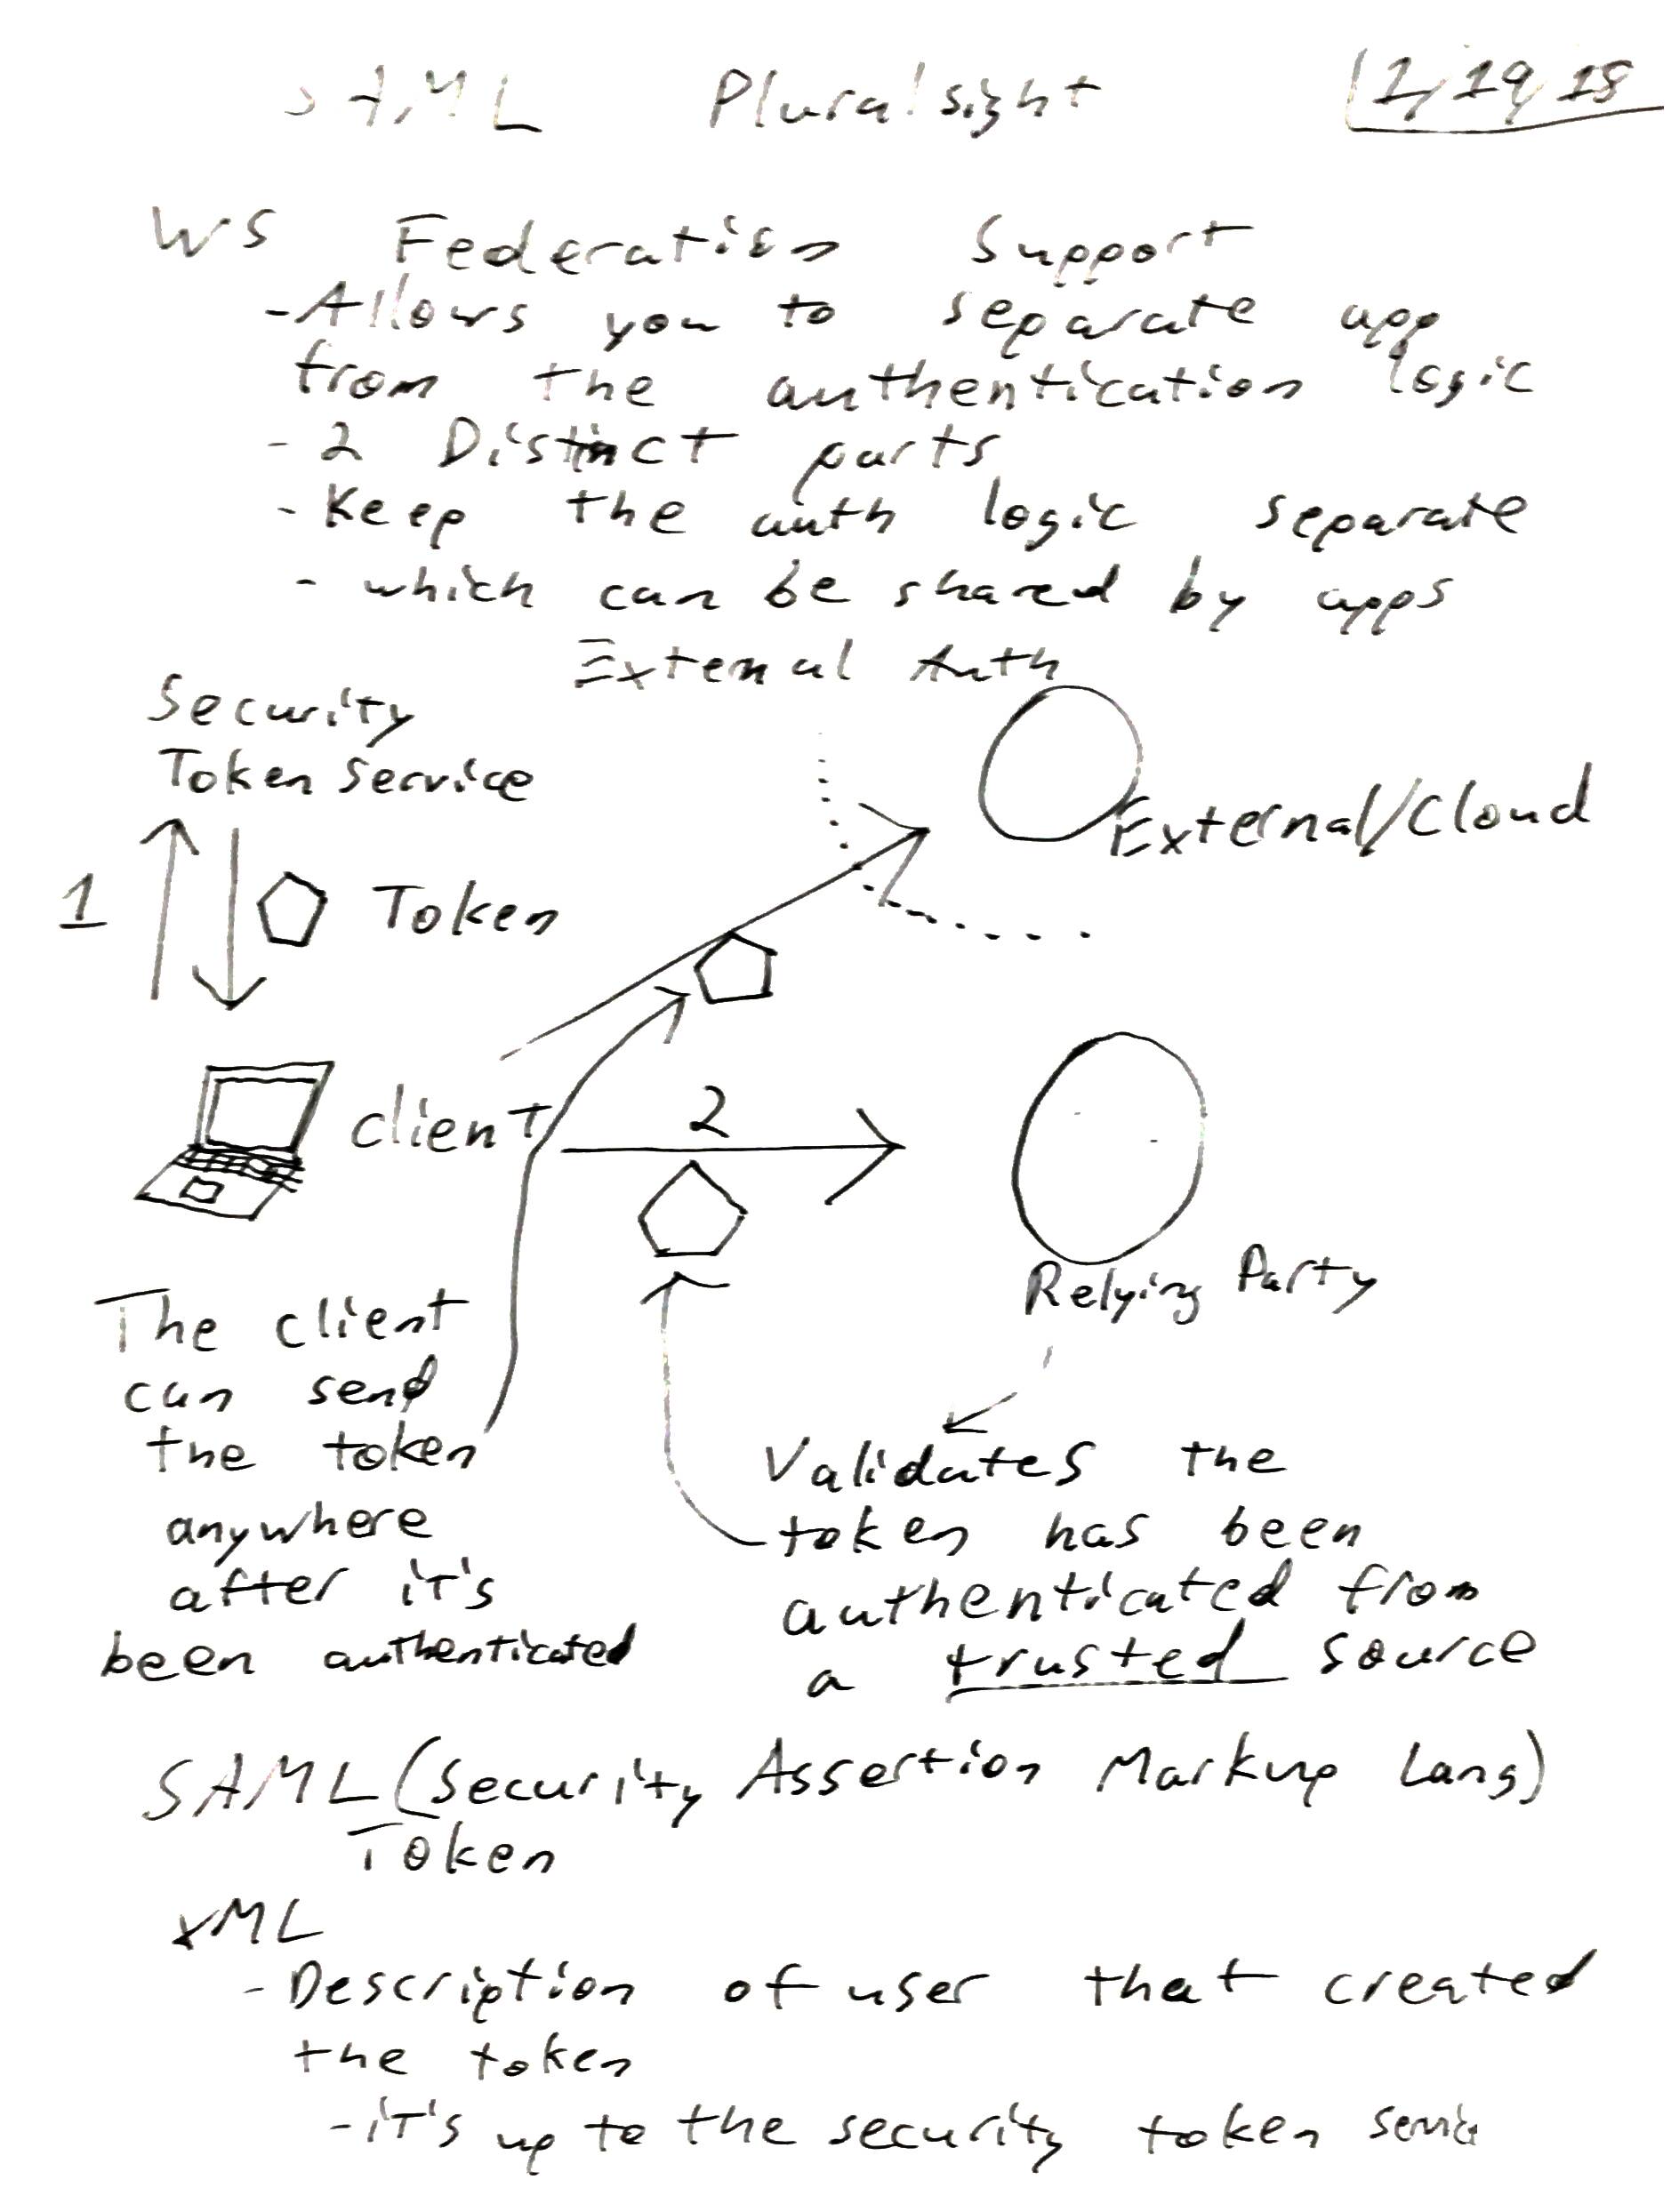 SAML Pluralsight 1/19/18
WS Federation Support
- Allows you to separate app
from the authentication logic
- 2 Distinct parts
- Keep the auth logic separate
- which can be shared by apps
External Auth
Security
Token Service
External/Cloud
1
Token
client
2
Relying Party
The client
can send
the token
anywhere
after it's
been authenticated
Validates the
token has been
authenticated from
a trusted source
SAML (Security Assertion Markup Lang)
Token
XML
- Description of user that created
the token
- it's up to the security token service